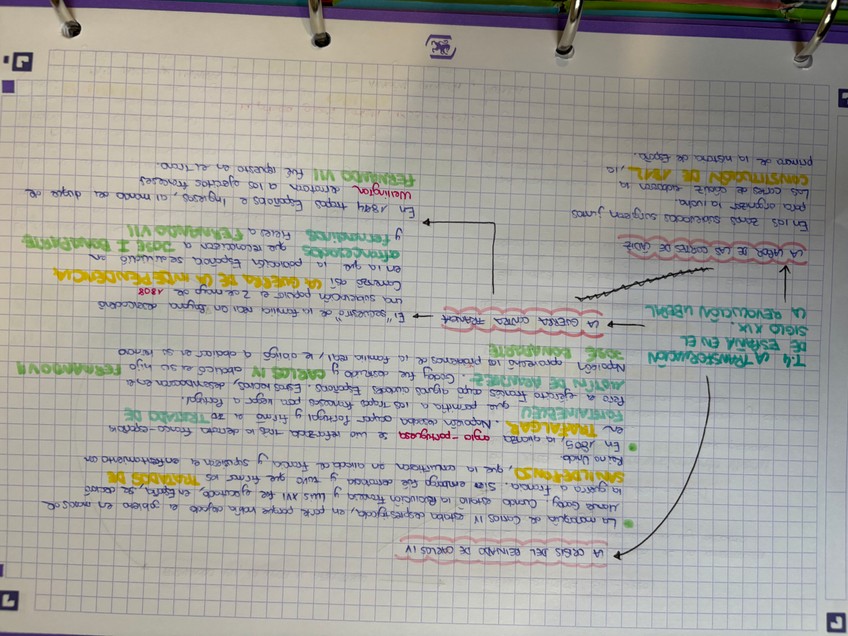 T.4 LA TRANSFORMACIÓN
DE ESPAÑA EN EL
SIGLO XIX.
LA REVOLUCIÓN LIBERAL
LA CRISIS DEL REINADO DE CARLOS IV
La monarquía de Carlos IV estaba desprestigiada, en parte porque había dejado el gobierno en manos de
Godoy. Cuando estalló la Revolución Francesa y Luis XVI fue ejecutado, en España se declaró
la guerra a Francia. Sin embargo fue derrotada y tuvo que firmar los TRATADOS DE
SAN ILDEFONSO, que la convirtieron en aliada de Francia y supusieron el enfrentamiento con
Reino Unido
En 1805, la alianza anglo-portuguesa se vio reforzada tras la derrota franco-española
en TRAFALGAR. Napoleón decidió ocupar Portugal y firmó el TRATADO DE
FONTAINEBLEU que permitía a las tropas francesas para llegar a Portugal.
Pero el ejército francés ocupó algunas ciudades Españolas. Estos hechos, desembocaron en el
MOTÍN DE ARANJUEZ. Godoy fue destituido y CARLOS IV abdicó en su hijo FERNANDO VII
Napoleón aprovechó los problemas de la familia real, les obligó a abdicar en su hermano
JOSÉ BONAPARTE
LA GUERRA CONTRA FRANCIA
El "secuestro" de la familia real en Bayona desencadenó
una sublevación popular el 2 de mayo de 1808
Comenzó así LA GUERRA DE LA INDEPENDENCIA
en la que la población Española se dividió en
afrancesados que reconocieron a JOSÉ I BONAPARTE
y fernandinos fieles a FERNANDO VII
En 1814 tropas Españolas e Inglesas, al mando del duque de
Wellington derrotaron a los ejércitos franceses
FERNANDO VII fue repuesto en el trono.
LA LABOR DE LAS CORTES DE CÁDIZ
En las zonas sublevadas surgieron juntas
para organizar la lucha.
Las cortes de Cádiz elaboraron la
CONSTITUCIÓN DE 1812, la
primera de la historia de España.